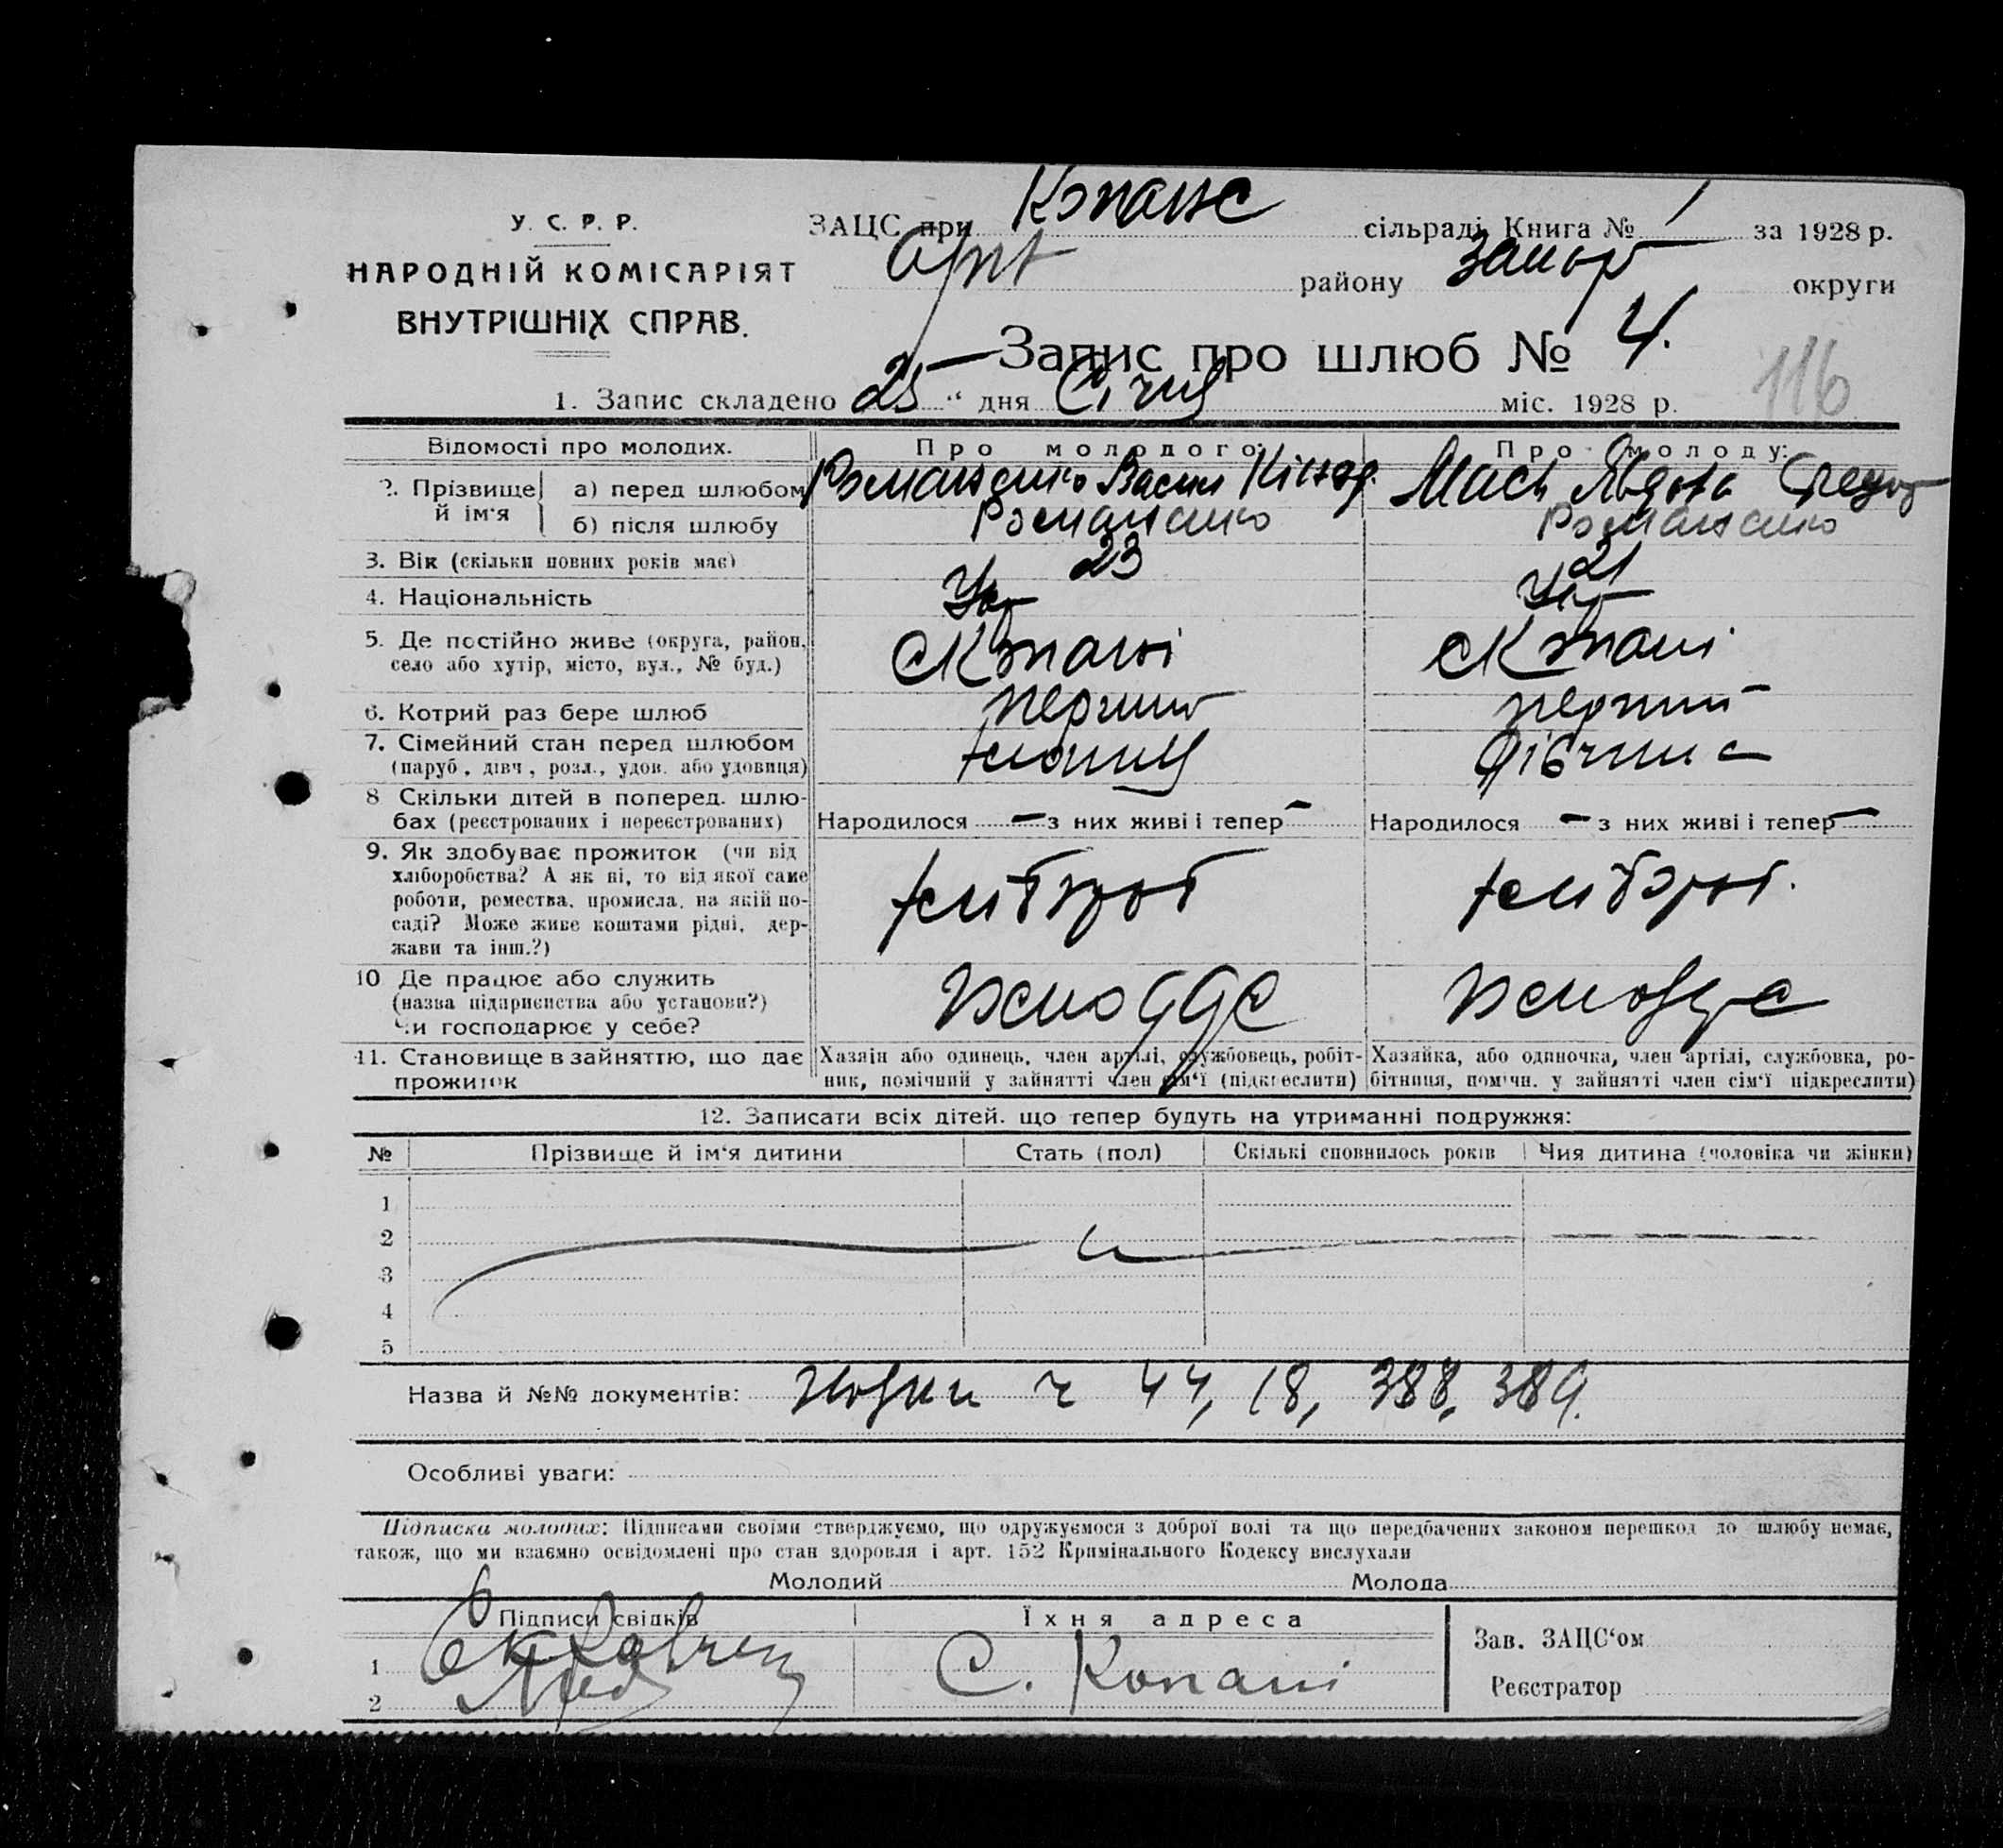 У. С. Р. Р.
НАРОДНІЙ КОМІСАРІЯТ
ВНУТРІШНІХ СПРАВ.
ЗАЦС при Копансе сільраді Книга № 1 за 1928 р.
району Запор округи
Запис про шлюб № 4.
116
1. Запис складено 25 “ дня Січня міс. 1928 р.
Відомості про молодих. Про молодого: Про молоду:
2. Прізвище й ім‘я а) перед шлюбом Романенко Василь Мась Явдоха
б) після шлюбу Романенко Романенко
3. Вік (скільки повних років має) 23 21
4. Національність Укр Укр
5. Де постійно живе (округа, район, с Копані с Копані
село або хутір, місто, вул., № буд.)
6. Котрий раз бере шлюб перший перший
7. Сімейний стан перед шлюбом дівчина
(паруб., дівч., розл., удов. або удовиця)
8 Скільки дітей в поперед. шлю- Народилося – з них живі і тепер – Народилося – з них живі і тепер –
бах (реєстрованих і нереєстрованих)
9. Як здобуває прожиток (чи від
хліборобства? А як ні, то від якої саме
роботи, ремества, промисла, на якій по-
саді? Може живе коштами рідні, дер-
жави та інш.?)
10 Де працює або служить
(назва підприємства або установи?)
Чи господарює у себе?
11. Становище в зайняттю, що дає Хазяін або одинець, член артілі, службовець, робіт- Хазяйка, або одиночка, член артілі, службовка, ро-
прожиток ник, помічний у зайнятті член сім‘ї (підкреслити) бітниця, помічн. у зайнятті член сім‘ї підкреслити)
12. Записати всіх дітей. що тепер будуть на утриманні подружжя:
№ Прізвище й ім‘я дитини Стать (пол) Скількі сповнилось років Чия дитина (чоловіка чи жінки)
1
2
3
4
5
Назва й №№ документів: ч 44, 18, 388, 389.
Особливі уваги:
Підписка молодих: Підписами своїми стверджуємо, що одружуємося з доброї волі та що передбачених законом перешкод до шлюбу немає,
також, що ми взаємно освідомлені про стан здоровля і арт. 152 Кримінального Кодексу вислухали
Молодий Молода
Підписи свідків Їхня адреса
Зав. ЗАЦС‘ом
1 С. Копані
Реєстратор
2